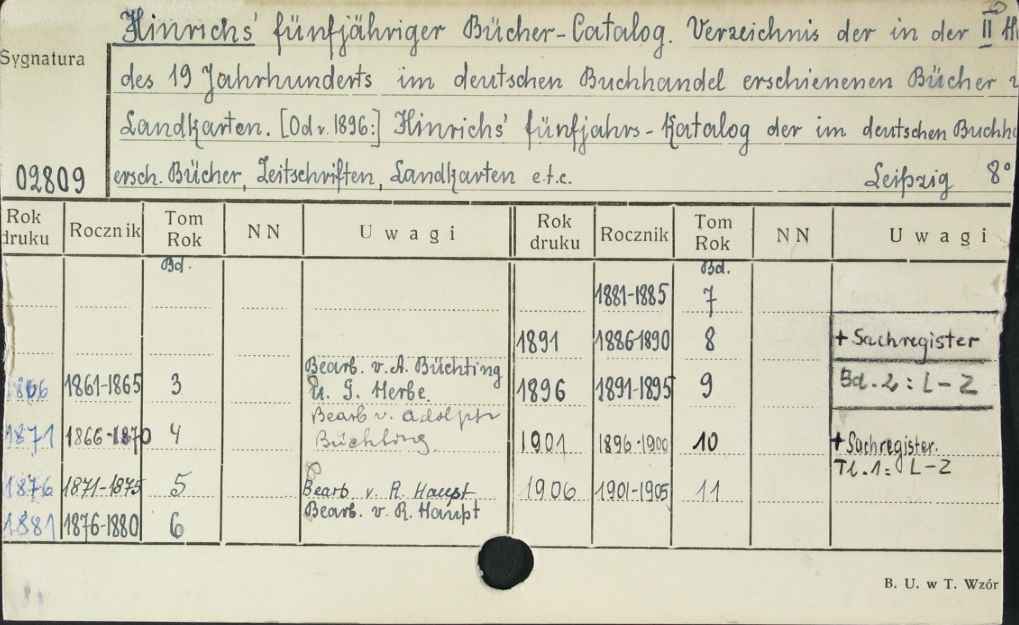 Hinrichs' fünfjähriger Bücher-Catalog. Verzeichnis der in der II
Sygnatura
des 19 Jahrhunderts im deutschen Buchhandel erschienenen Bücher
Landkarten. [Od r. 1896:] Hinrichs' fünfjahrs-Katalog der im deutschen Buchh
02809 ersch. Bücher, Zeitschriften, Landkarten etc. Leipzig 8°
Rok druku Rocznik Tom Rok NN Uwagi Rok druku Rocznik Tom Rok NN Uwagi
Bd. Bd.
1881-1885 7
1891 1886-1890 8 + Sachregister
1866 1861-1865 3 Bearb. v. A. Büchting u. G. Herbe. 1896 1891-1895 9 Bd. 2: L-Z
1871 1866-1870 4 Bearb v. Adolph Büchting 1901 1896-1900 10 + Sachregister. Tl. 1: L-Z
1876 1871-1875 5 Bearb. v. R. Haupt 1906 1901-1905 11
1881 1876-1880 6 Bearb. v. R. Haupt
B. U. w T. Wzór